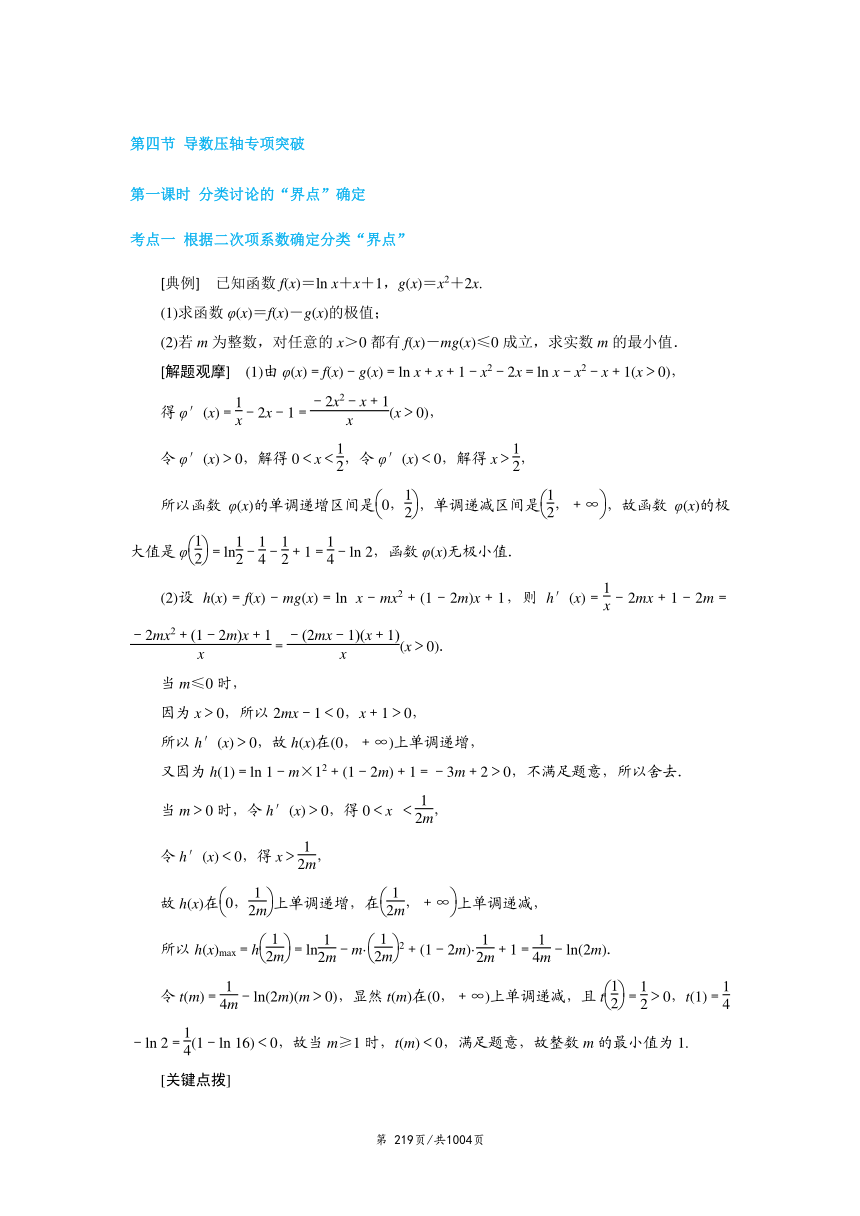 第四节 导数压轴专项突破
第一课时 分类讨论的“界点”确定
考点一 根据二次项系数确定分类“界点”
[典例] 已知函数 f(x)＝ln x＋x＋1，g(x)＝x²＋2x.
(1)求函数 φ(x)＝f(x)－g(x)的极值；
(2)若 m 为整数，对任意的 x＞0 都有 f(x)－mg(x)≤0 成立，求实数 m 的最小值．
[解题观摩] (1)由 φ(x)＝f(x)－g(x)＝ln x＋x＋1－x²－2x＝ln x－x²－x＋1(x＞0)，
得 φ′(x)＝1/x－2x－1＝(－2x²－x＋1)/x(x＞0)，
令 φ′(x)＞0，解得 0＜x＜1/2，令 φ′(x)＜0，解得 x＞1/2，
所以函数 φ(x)的单调递增区间是(0，1/2)，单调递减区间是(1/2，＋∞)，故函数 φ(x)的极
大值是 φ(1/2)＝ln1/2－1/4－1/2＋1＝1/4－ln 2，函数 φ(x)无极小值．
(2)设 h(x)＝f(x)－mg(x)＝ln x－mx²＋(1－2m)x＋1，则 h′(x)＝1/x－2mx＋1－2m＝
(－2mx²＋(1－2m)x＋1)/x＝－(2mx－1)(x＋1)/x(x＞0)．
当 m≤0 时，
因为 x＞0，所以 2mx－1＜0，x＋1＞0，
所以 h′(x)＞0，故 h(x)在(0，＋∞)上单调递增，
又因为 h(1)＝ln 1－m×1²＋(1－2m)＋1＝－3m＋2＞0，不满足题意，所以舍去．
当 m＞0 时，令 h′(x)＞0，得 0＜x ＜1/2m，
令 h′(x)＜0，得 x＞1/2m，
故 h(x)在(0，1/2m)上单调递增，在(1/2m，＋∞)上单调递减，
所以 h(x)max＝h(1/2m)＝ln1/2m－m·(1/2m)²＋(1－2m)·1/2m＋1＝1/4m－ln(2m)．
令 t(m)＝1/4m－ln(2m)(m＞0)，显然 t(m)在(0，＋∞)上单调递减，且 t(1/2)＝1/2＞0，t(1)＝1/4
－ln 2＝1/4(1－ln 16)＜0，故当 m≥1 时，t(m)＜0，满足题意，故整数 m 的最小值为 1.
[关键点拨]
第 219页/共1004页